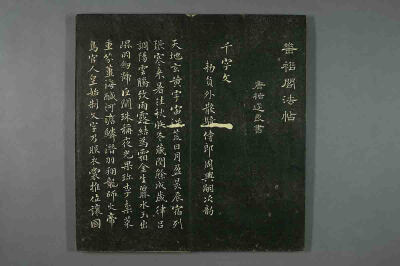 閣法帖
唐褚遂良書
千字文
勑員外散騎侍郎周興嗣次韻
天地玄黃宇宙洪荒日月盈昃辰宿列
張寒來暑往秋收冬藏閏餘成歲律呂
調陽雲騰致雨露結為霜金生麗水玉出
崐岡劍號巨闕珠稱夜光果珍李柰菜
重芥薑海鹹河淡鱗潛羽翔龍師火帝
鳥官人皇始制文字乃服衣裳推位讓國